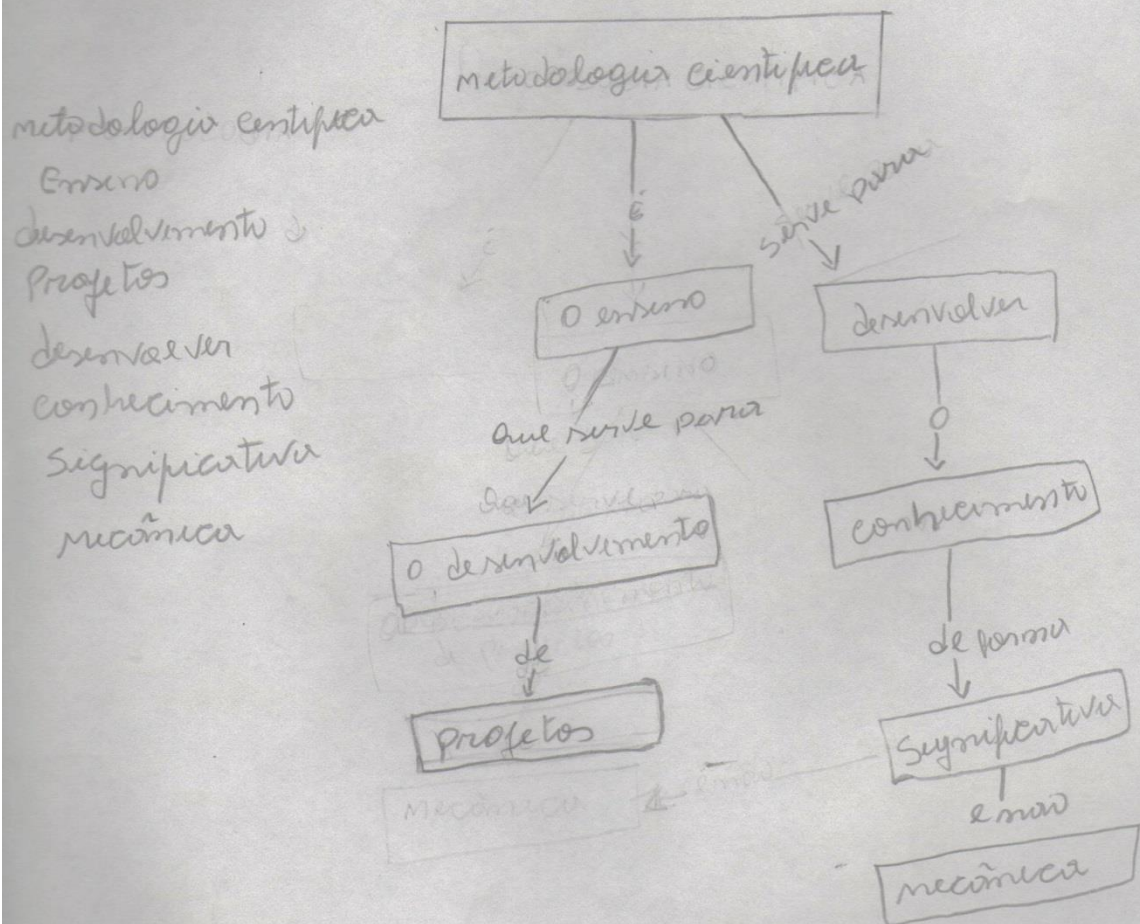 metodologia centifica
Ensino
desenvolvimento
Projetos
desenvolver
conhecimento
Significativa
mecânica
metodologia cientifica
é
serve para
O ensino
desenvolver
que serve para
O
O desenvolvimento
conhecimento
de
de forma
projetos
Significativa
e não
mecânica
O ensino
que serve para
mecânica
e não
é